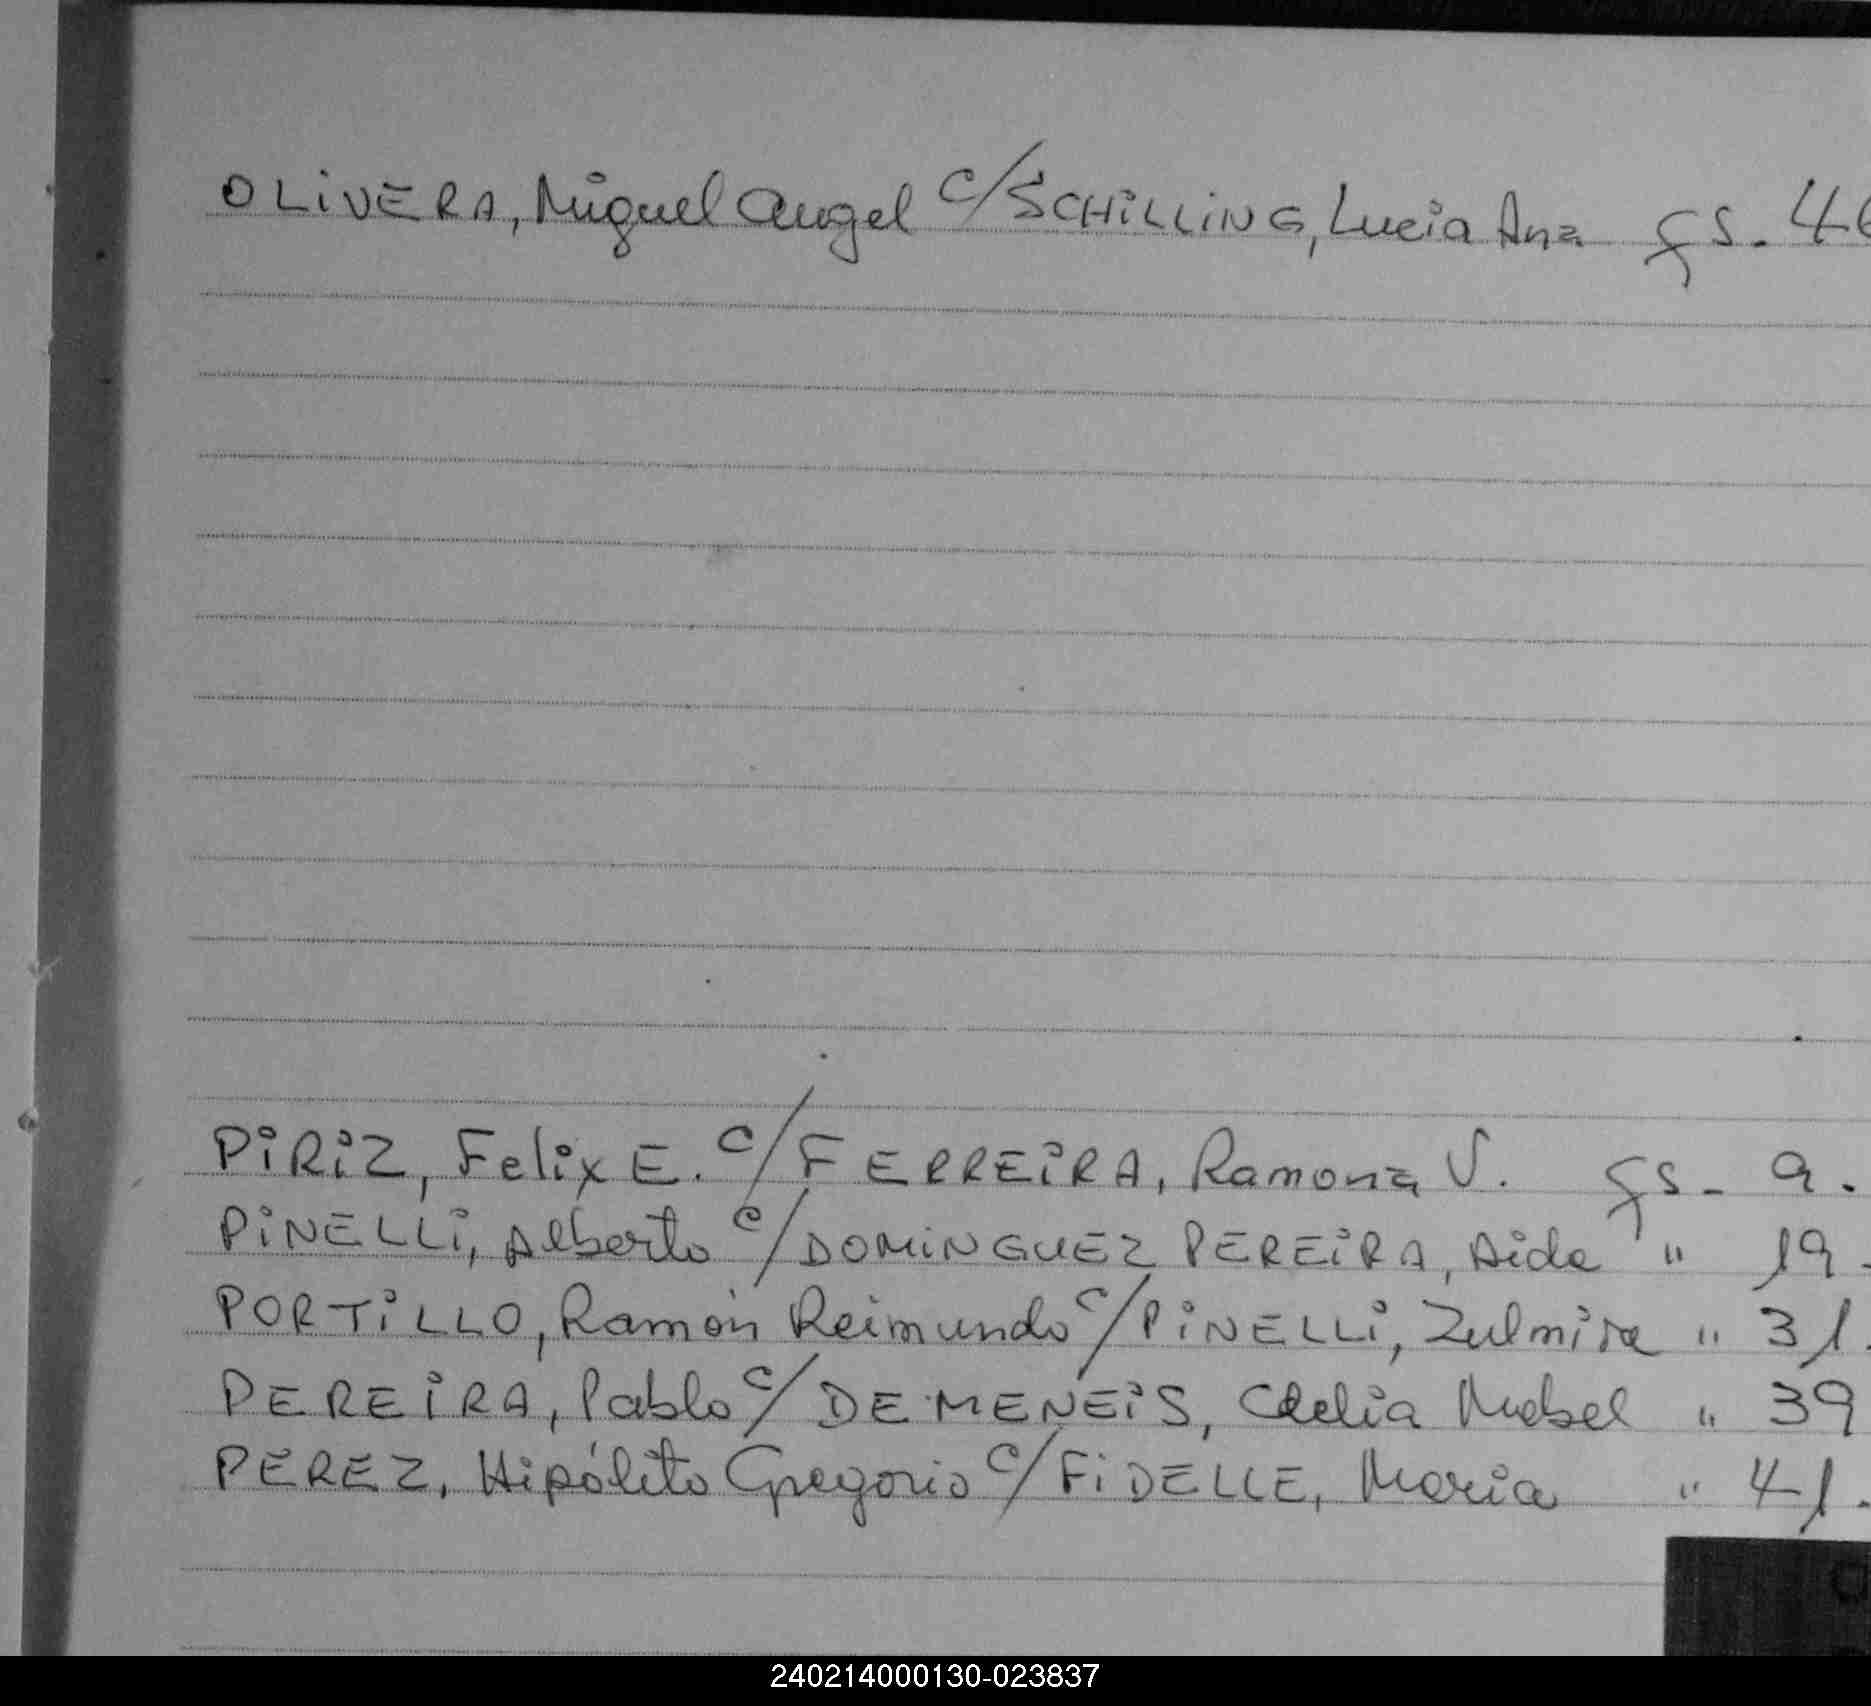 OLIVERA, Miguel Angel c/SCHILLING, Lucia Ana fs. 4
PIRIZ, Felix E. c/FERREIRA, Ramona V. fs - 9.
PINELLI, Alberto c/DOMINGUEZ PEREIRA, Aida " 19.
PORTILLO, Ramón Reimundo c/PINELLI, Zulmira " 31.
PEREIRA, Pablo c/DE MENEIS, Mabel " 39
PEREZ, Hipólito Gregorio c/FIDELLE, Maria " 41.
240214000130-023837